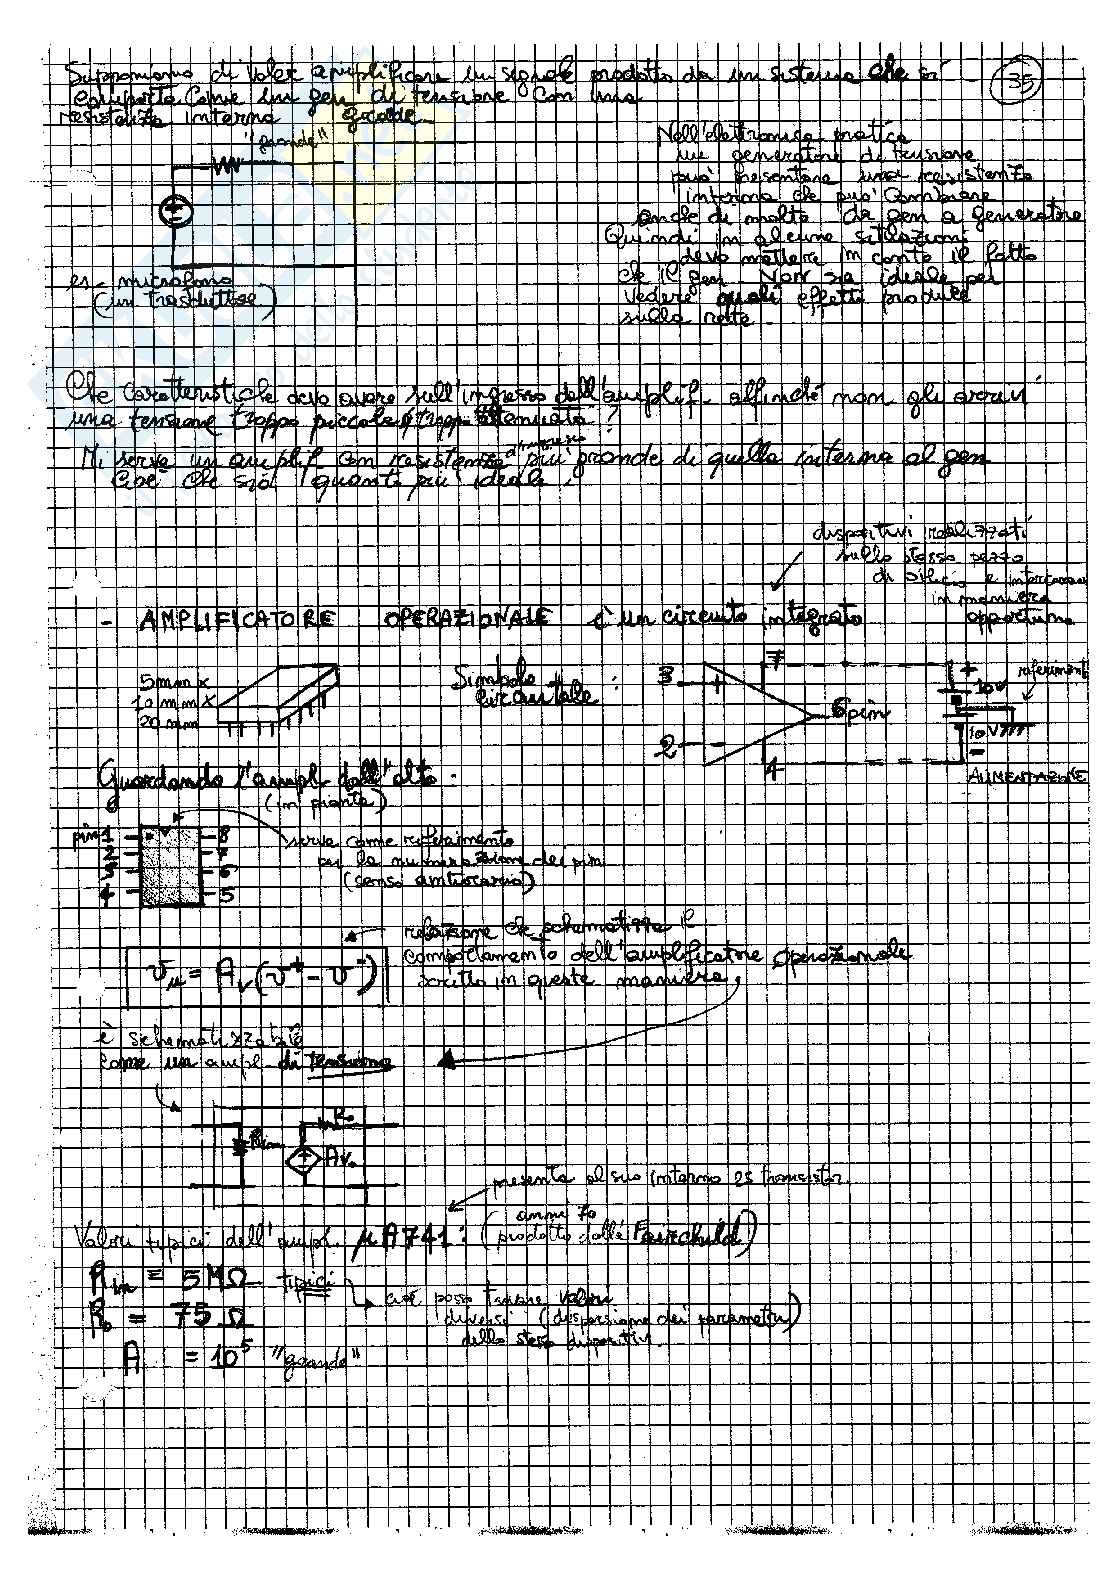 Supponiamo di voler amplificare un segnale prodotto da un sistema che si
comporta come un gen di tensione con una
resistenza interna grande
35
"grande"
Nell'elettronica pratica
un generatore di tensione
può presentare una resistenza
interna che può cambiare
anche di molto da gen a generatore
Quindi in alcune situazioni
devo mettere in conto il fatto
che il gen NON sia ideale per
vedere quali effetti produce
sulla rete.
es - microfono
(un trasduttore)
Che caratteristiche devo avere sull'ingresso dell'amplif. affinché non gli arrivi
una tensione troppo piccola / troppo attenuata ?
Mi serve un amplif con resistenza d'ingresso più grande di quella interna al gen
cioè che sia quanto più ideale.
dispositivi realizzati
sullo stesso pezzo
di silicio e interconnessi
in maniera
opportuna
- AMPLIFICATORE OPERAZIONALE è un circuito integrato
5mm x
10 mm x
20 mm
Simbolo
circuitale :
3
+
7
6 pin
2
-
4
+
10V
riferimento
10V
-
ALIMENTAZIONE
Guardando l'ampl dall'alto.
(in pianta)
pin 1
2
3
4
8
7
6
5
serve come riferimento
per la numerazione dei pin
(senso antiorario)
relazione che schematizza il
comportamento dell'amplificatore operazionale
scritto in questa maniera,
vu = Av (v+ - v-)
è schematizzabile
come un ampl. di tensione
Rin
Ro
Avo
presenta al suo interno 25 transistor.
Valori tipici dell'ampl. μA741: (anni 70
prodotto dalla Fairchild)
Rin = 5MΩ tipici
cioè posso trovare valori
diversi (dispersione dei parametri)
dello stesso dispositivo.
Ro = 75 Ω
A = 10^5 "grande"